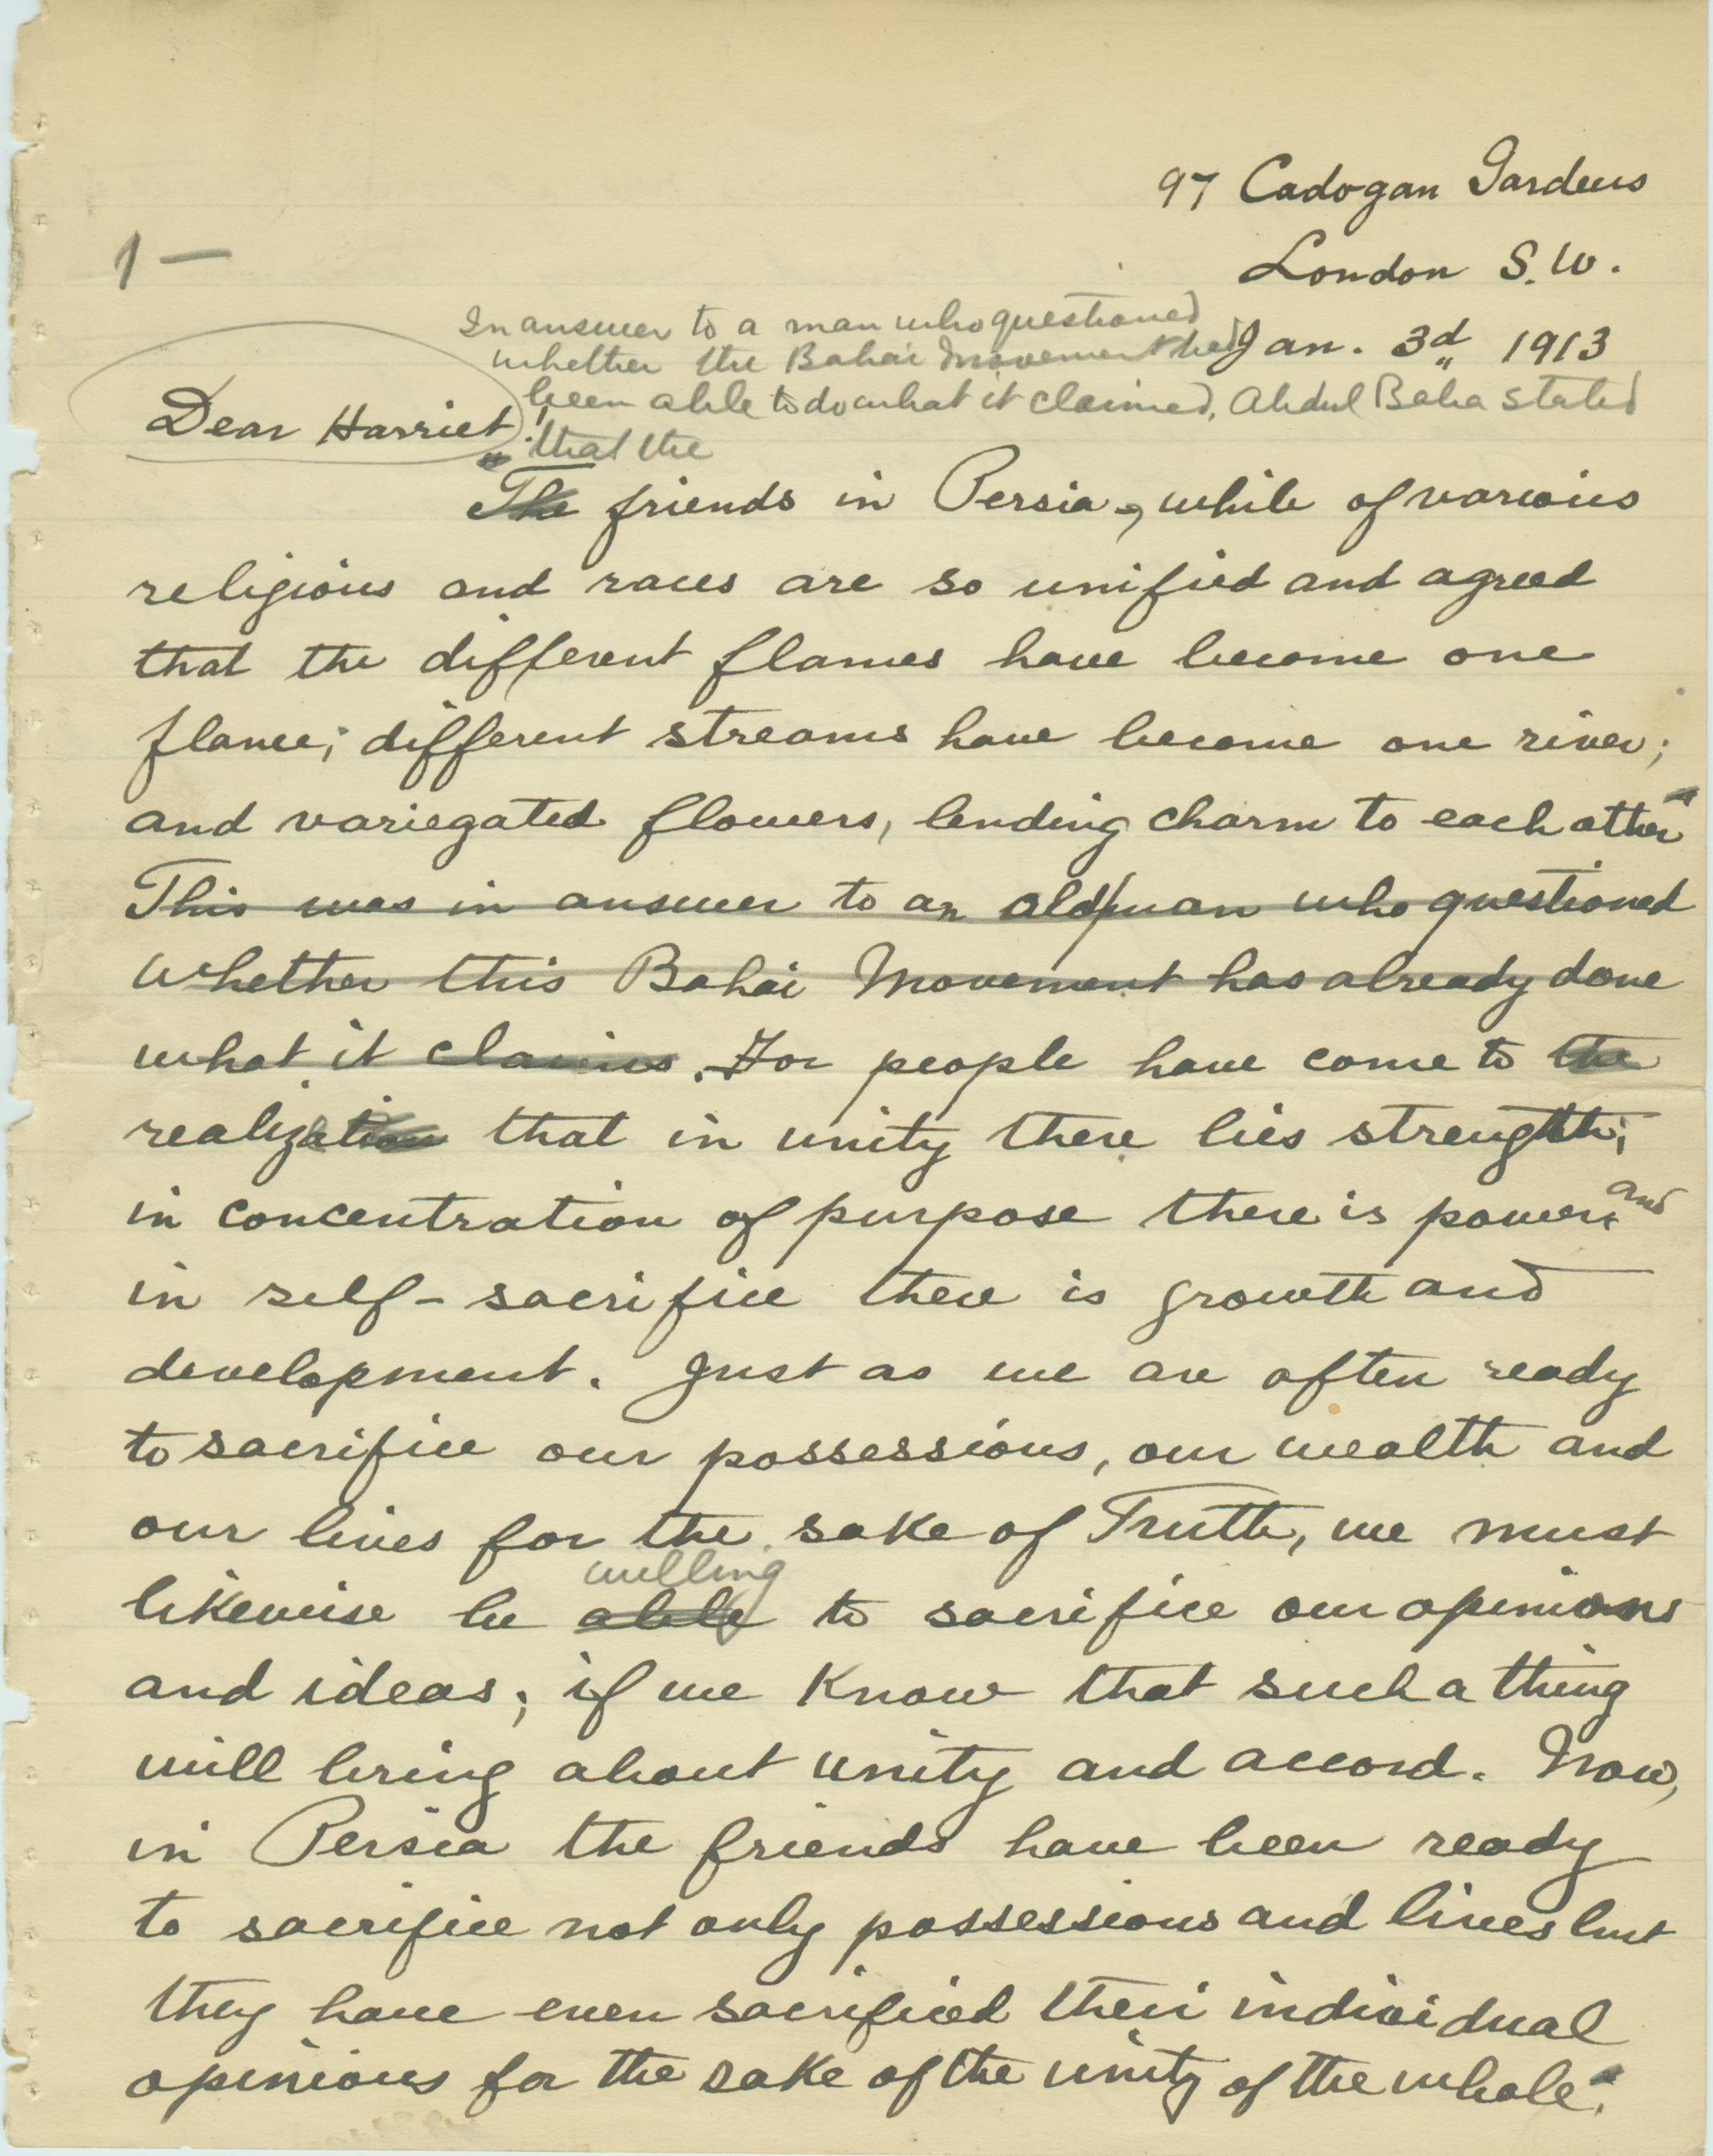 97 Cadogan Gardens
London S.W.
1 —
Jan. 3d 1913
In answer to a man who questioned
whether the Bahai Movement had
been able to do what it claimed, Abdul Baha stated
that the
Dear Harriet!
"The friends in Persia, while of various
religions and races are so unified and agreed
that the different flames have become one
flame; different streams have become one river;
and variegated flowers, lending charm to each other"
This was in answer to an old man who questioned
whether this Bahai Movement has already done
what it claims. For people have come to the
realization that in unity there lies strength;
in concentration of purpose there is power; and
in self-sacrifice there is growth and
development. Just as we are often ready
to sacrifice our possessions, our wealth and
our lives for the sake of Truth, we must
willing
likewise be able to sacrifice our opinions
and ideas; if we know that such a thing
will bring about unity and accord. Now,
in Persia the friends have been ready
to sacrifice not only possessions and lives but
they have even sacrificed their individual
opinions for the sake of the unity of the whole."